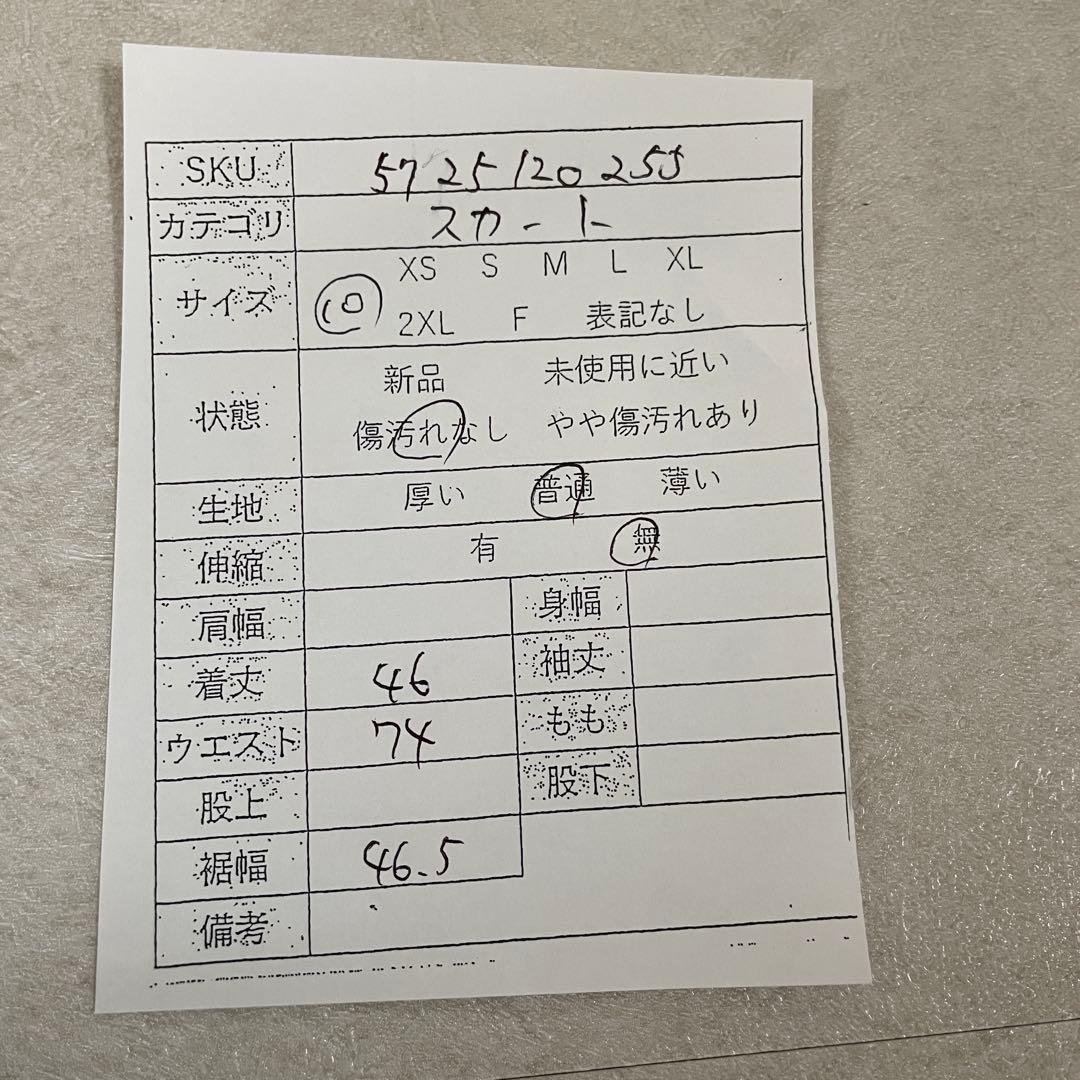 SKU 5725120255
カテゴリ スカート
サイズ 10 XS S M L XL
2XL F 表記なし
状態 新品 未使用に近い
傷汚れなし やや傷汚れあり
生地 厚い 普通 薄い
伸縮 有 無
肩幅 身幅
着丈 46 袖丈
ウエスト 74 もも
股上 股下
裾幅 46.5
備考